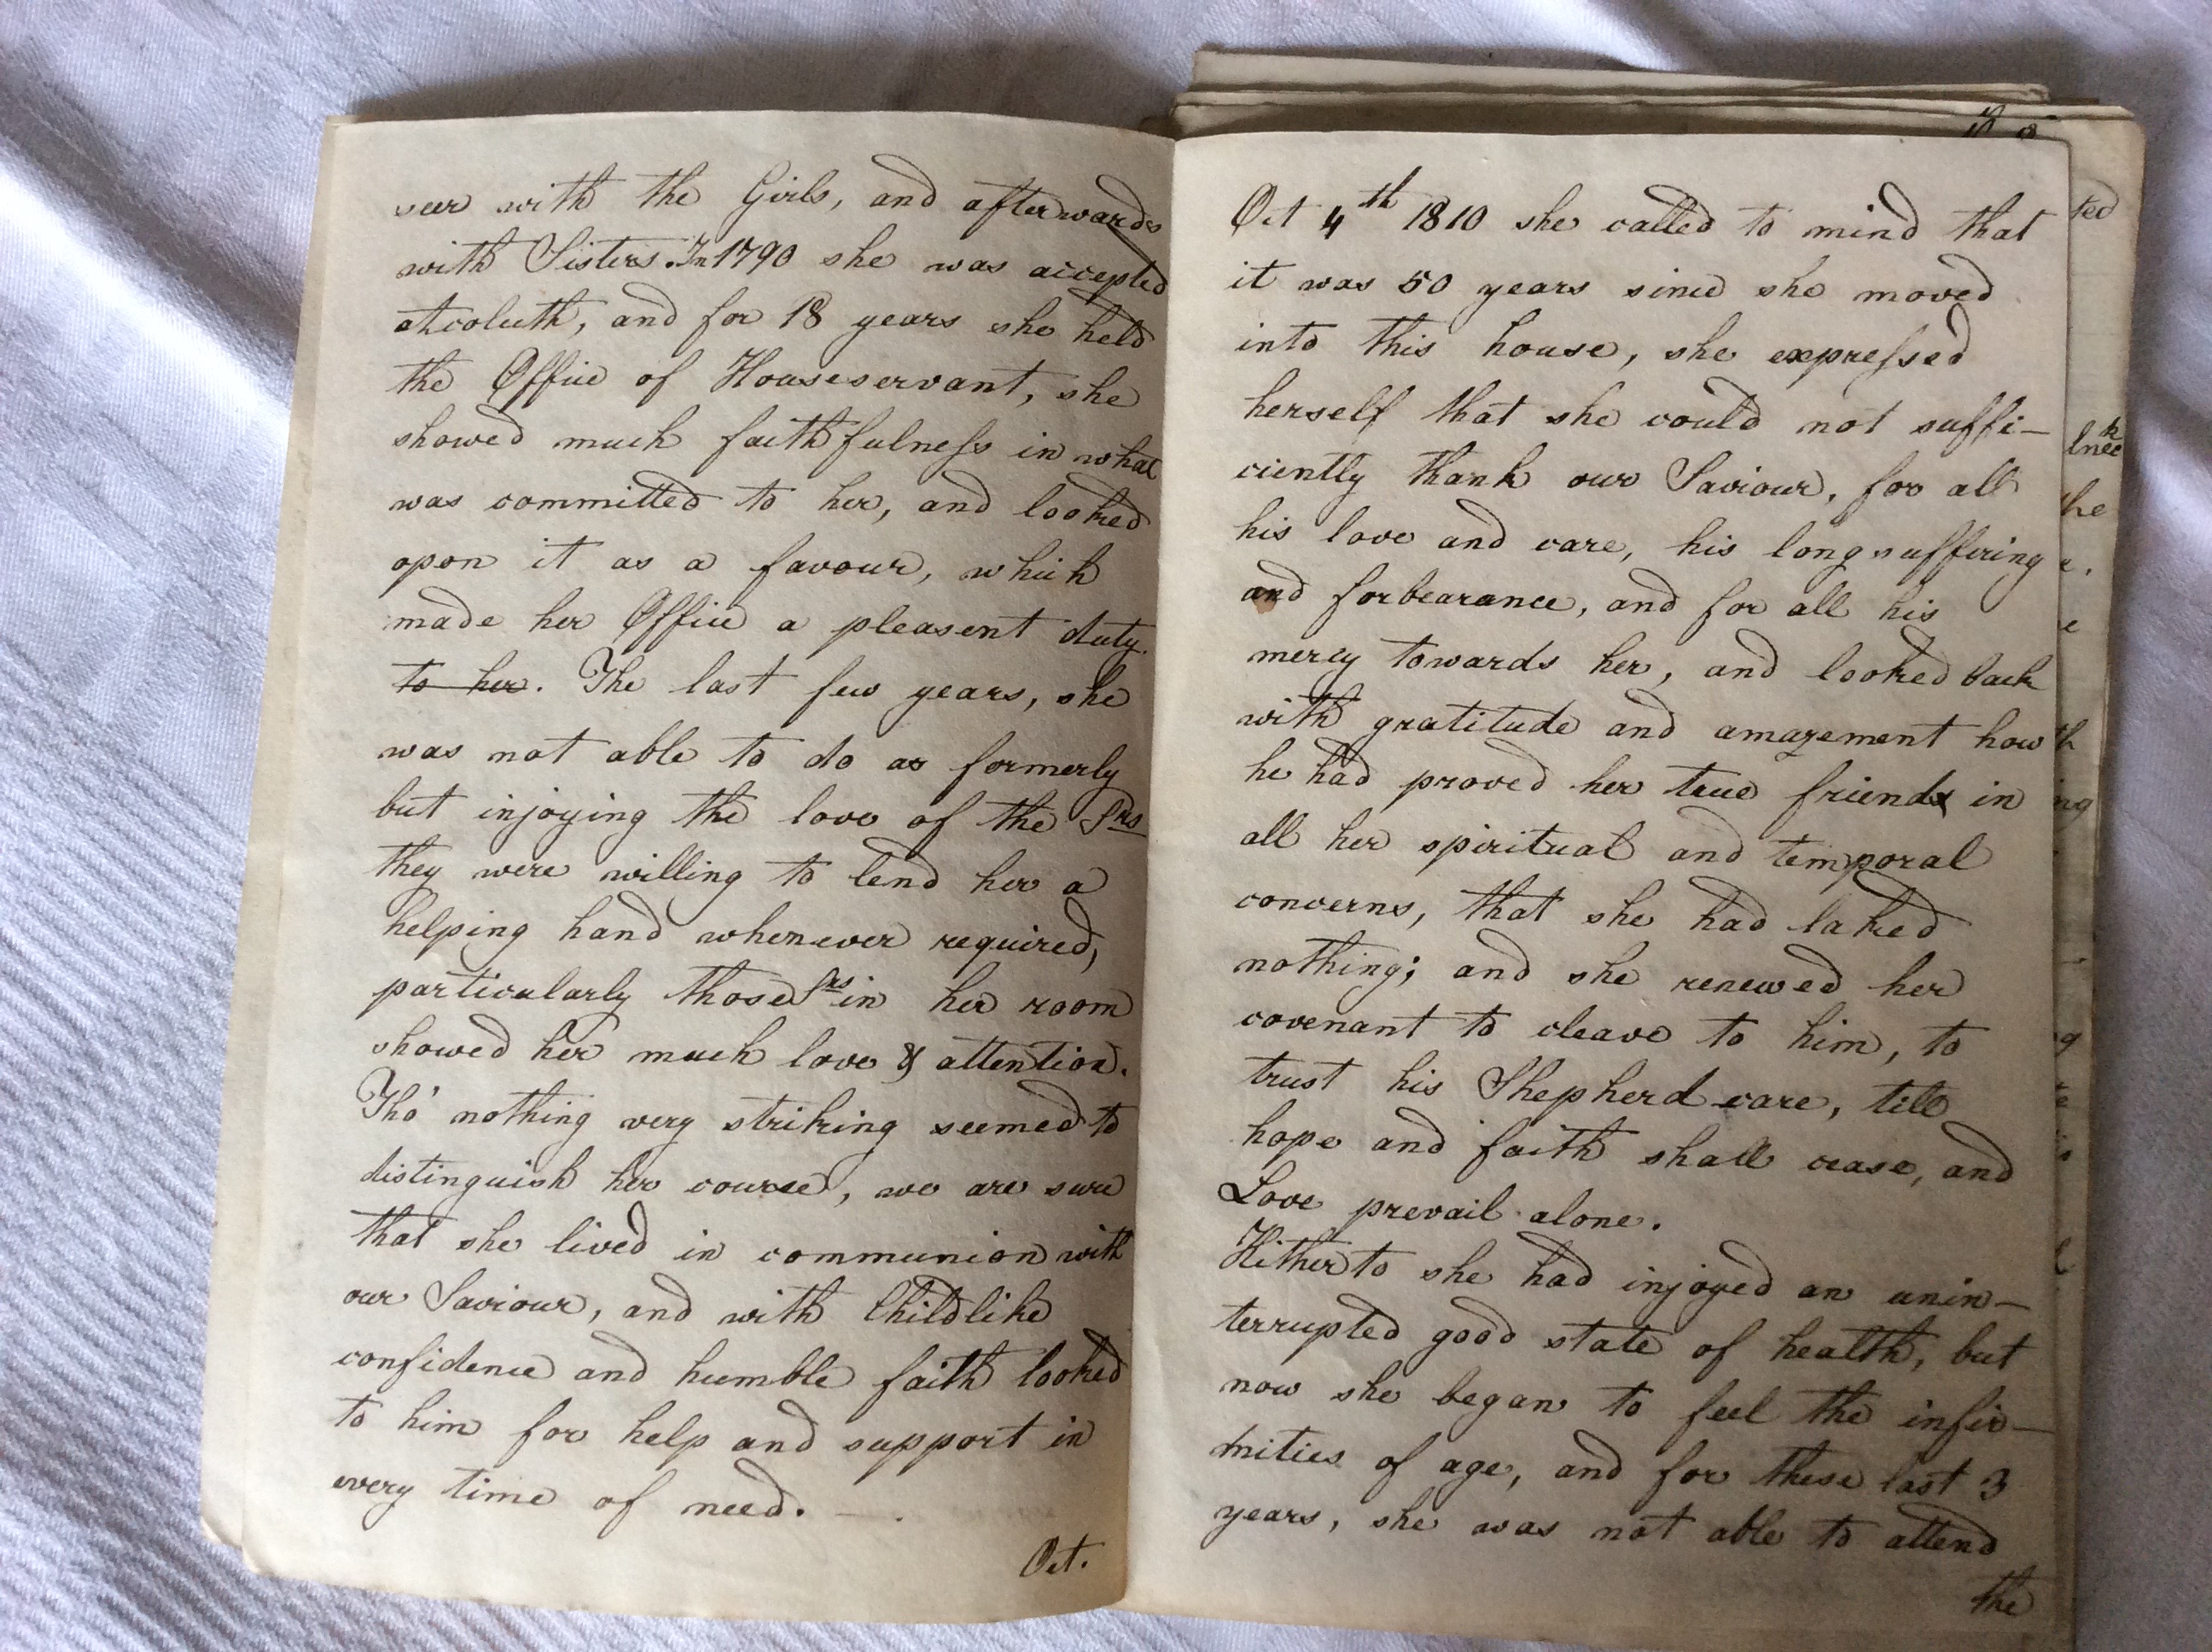 seer with the Girls, and afterwards
with Sisters. In 1790 she was accepted
Acoluth, and for 18 years she held
the Office of Houseservant, she
showed much faithfulness in what
was committed to her, and looked
opon it as a favour, which
made her Office a pleasent duty.
to her. The last few years, she
was not able to do as formerly
but injoying the love of the Srs
they were willing to lend her a
helping hand whenever required,
particularly those Srs in her room
showed her much love & attention.
Tho' nothing very striking seemed to
distinguish her course, we are sure
that she lived in communion with
our Saviour, and with Childlike
confidence and humble faith looked
to him for help and support in
every time of need. —.
Oct.
Oct 4th 1810 she called to mind that
it was 50 years since she moved
into this house, she expressed
herself that she could not suffi-
ciently thank our Saviour, for all
his love and care, his longsuffering
and forbearance, and for all his
mercy towards her, and looked back
with gratitude and amazement how
he had proved her true friend in
all her spiritual and temporal
concerns, that she had laked
nothing; and she renewed her
covenant to cleave to him, to
trust his Shepherd care, till
hope and faith shall cease, and
Love prevail alone.
Hitherto she had injoyed an unin-
terrupted good state of health, but
now she began to feel the infir-
mities of age, and for these last 3
years, she was not able to attend
the